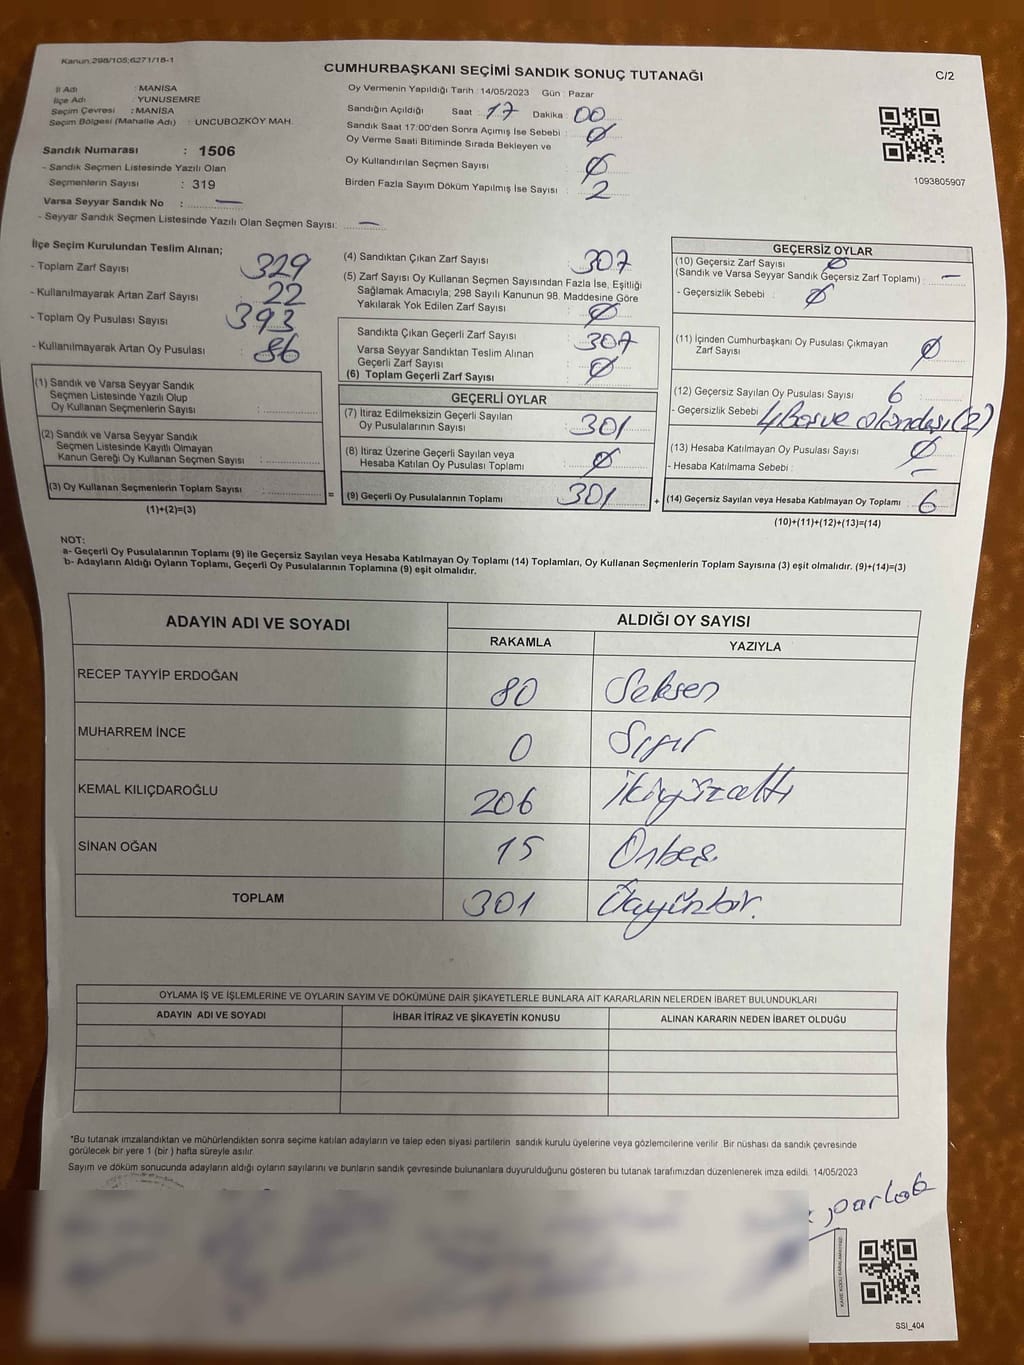 Kanun;298/105;6271/18-1
CUMHURBAŞKANI SEÇİMİ SANDIK SONUÇ TUTANAĞI
C/2
İl Adı : MANİSA
İlçe Adı : YUNUSEMRE
Seçim Çevresi : MANİSA
Seçim Bölgesi (Mahalle Adı) : UNCUBOZKÖY MAH.
Sandık Numarası : 1506
- Sandık Seçmen Listesinde Yazılı Olan
Seçmenlerin Sayısı : 319
Varsa Seyyar Sandık No : —
- Seyyar Sandık Seçmen Listesinde Yazılı Olan Seçmen Sayısı: —
Oy Vermenin Yapıldığı Tarih : 14/05/2023 Gün : Pazar
Sandığın Açıldığı Saat : 17 Dakika : 00
Sandık Saat 17:00'den Sonra Açımış İse Sebebi : Ø
Oy Verme Saati Bitiminde Sırada Bekleyen ve
Oy Kullandırılan Seçmen Sayısı : Ø
Birden Fazla Sayım Döküm Yapılmış İse Sayısı : 2
1093805907
İlçe Seçim Kurulundan Teslim Alınan;
- Toplam Zarf Sayısı : 329
- Kullanılmayarak Artan Zarf Sayısı : 22
- Toplam Oy Pusulası Sayısı : 393
- Kullanılmayarak Artan Oy Pusulası : 86
(1) Sandık ve Varsa Seyyar Sandık
Seçmen Listesinde Yazılı Olup
Oy Kullanan Seçmenlerin Sayısı :
(2) Sandık ve Varsa Seyyar Sandık
Seçmen Listesinde Kayıtlı Olmayan
Kanun Gereği Oy Kullanan Seçmen Sayısı :
(3) Oy Kullanan Seçmenlerin Toplam Sayısı :
(1)+(2)=(3)
=
(4) Sandıktan Çıkan Zarf Sayısı : 307
(5) Zarf Sayısı Oy Kullanan Seçmen Sayısından Fazla İse, Eşitliği
Sağlamak Amacıyla, 298 Sayılı Kanunun 98. Maddesine Göre
Yakılarak Yok Edilen Zarf Sayısı : Ø
Sandıkta Çıkan Geçerli Zarf Sayısı : 307
Varsa Seyyar Sandıktan Teslim Alınan
Geçerli Zarf Sayısı : Ø
(6) Toplam Geçerli Zarf Sayısı :
GEÇERLİ OYLAR
(7) İtiraz Edilmeksizin Geçerli Sayılan
Oy Pusulalarının Sayısı : 301
(8) İtiraz Üzerine Geçerli Sayılan veya
Hesaba Katılan Oy Pusulası Toplamı : Ø
(9) Geçerli Oy Pusulalarının Toplamı : 301
+
GEÇERSİZ OYLAR
(10) Geçersiz Zarf Sayısı Ø
(Sandık ve Varsa Seyyar Sandık Geçersiz Zarf Toplamı) : —
- Geçersizlik Sebebi : Ø
(11) İçinden Cumhurbaşkanı Oy Pusulası Çıkmayan
Zarf Sayısı : Ø
(12) Geçersiz Sayılan Oy Pusulası Sayısı : 6
- Geçersizlik Sebebi : (2)
(13) Hesaba Katılmayan Oy Pusulası Sayısı : Ø
- Hesaba Katılmama Sebebi : —
(14) Geçersiz Sayılan veya Hesaba Katılmayan Oy Toplamı : 6
(10)+(11)+(12)+(13)=(14)
NOT:
a- Geçerli Oy Pusulalarının Toplamı (9) ile Geçersiz Sayılan veya Hesaba Katılmayan Oy Toplamı (14) Toplamları, Oy Kullanan Seçmenlerin Toplam Sayısına (3) eşit olmalıdır. (9)+(14)=(3)
b- Adayların Aldığı Oyların Toplamı, Geçerli Oy Pusulalarının Toplamına (9) eşit olmalıdır.
ADAYIN ADI VE SOYADI
ALDIĞI OY SAYISI
RAKAMLA YAZIYLA
RECEP TAYYİP ERDOĞAN 80 Seksen
MUHARREM İNCE 0 Sıfır
KEMAL KILIÇDAROĞLU 206 İkiyüzaltı
SİNAN OĞAN 15 Onbeş
TOPLAM 301 Üçyüzbir.
OYLAMA İŞ VE İŞLEMLERİNE VE OYLARIN SAYIM VE DÖKÜMÜNE DAİR ŞİKAYETLERLE BUNLARA AİT KARARLARIN NELERDEN İBARET BULUNDUKLARI
ADAYIN ADI VE SOYADI İHBAR İTİRAZ VE ŞİKAYETİN KONUSU ALINAN KARARIN NEDEN İBARET OLDUĞU
*Bu tutanak imzalandıktan ve mühürlendikten sonra seçime katılan adayların ve talep eden siyasi partilerin sandık kurulu üyelerine veya gözlemcilerine verilir. Bir nüshası da sandık çevresinde
görülecek bir yere 1 (bir) hafta süreyle asılır.
Sayım ve döküm sonucunda adayların aldığı oyların sayılarını ve bunların sandık çevresinde bulunanlara duyurulduğunu gösteren bu tutanak tarafımızdan düzenlenerek imza edildi. 14/05/2023
parlak
SSI_404